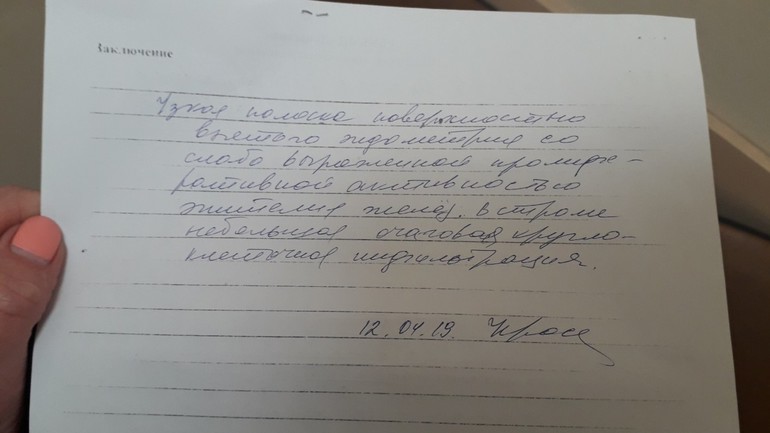 Заключение
Узкая полоска поверхностно
взятого эндометрия со
слабо выраженной пролифе-
ративной активностью
эпителия желёз. В строме
небольшая очаговая кругло-
клеточная инфильтрация.
12.04.19.